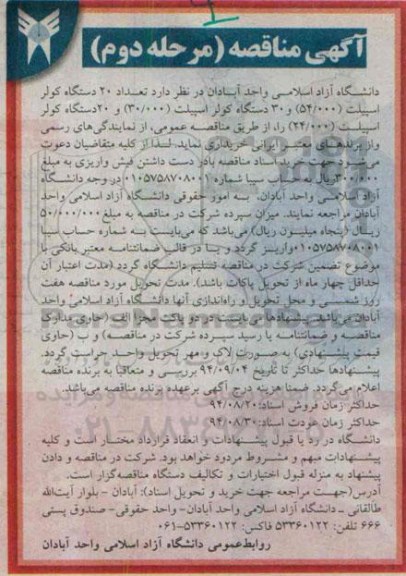 آگهی مناقصه (مرحله دوم)
دانشگاه آزاد اسلامی واحد آبادان در نظر دارد تعداد ۲۰ دستگاه کولر
اسپیلت (۵۴/۰۰۰) و ۳۰ دستگاه کولر اسپیلت (۳۰/۰۰۰) و ۲۰دستگاه کولر
اسپیلت (۲۴/۰۰۰) را، از طریق مناقصه عمومی، از نمایندگی های رسمی
واز برندهای معتبر ایرانی خریداری نماید. لذا از کلیه متقاضیان دعوت
می‌شود جهت خرید اسناد مناقصه بادر دست داشتن فیش واریزی به مبلغ
۳۰۰/۰۰۰ ریال به حساب سیبا شماره ۰۱۰۵۷۵۸۷۰۸۰۰۱ در وجه دانشگاه
آزاد اسلامی واحد آبادان، به امور حقوقی دانشگاه آزاد اسلامی واحد
آبادان مراجعه نمایند. میزان سپرده شرکت در مناقصه به مبلغ ۵۰/۰۰۰/۰۰۰
ریال (پنجاه میلیون ریال) می‌باشد که می‌بایست به شماره حساب سیبا
۰۱۰۵۷۵۸۷۰۸۰۰۱ واریز گردد و یا در قالب ضمانتنامه معتبر بانکی با
موضوع تضمین شرکت در مناقصه تسلیم دانشگاه گردد (مدت اعتبار آن
حداقل چهار ماه از تحویل پاکات باشد). مدت تحویل مورد مناقصه هفت
روز شمسی و محل تحویل و راه‌اندازی آنها دانشگاه آزاد اسلامی واحد
آبادان می‌باشد. پیشنهادها می‌بایست در دو پاکت مجزا الف (حاوی مدارک
مناقصه و ضمانتنامه یا رسید سپرده شرکت در مناقصه) و ب (حاوی
قیمت پیشنهادی) به صورت لاک و مهر تحویل واحد حراست گردد.
پیشنهادها حداکثر تا تاریخ ۹۴/۰۹/۰۴ بررسی و متعاقبا به برنده مناقصه
اعلام می‌گردد. ضمنا هزینه درج آگهی برعهده برنده مناقصه می‌باشد.
حداکثر زمان فروش اسناد: ۹۴/۰۸/۲۰
حداکثر زمان عودت اسناد: ۹۴/۰۸/۳۰
دانشگاه در رد یا قبول پیشنهادات و انعقاد قرارداد مختار است و کلیه
پیشنهادات مبهم و مشروط مردود خواهد بود. شرکت در مناقصه و دادن
پیشنهاد به منزله قبول اختیارات و تکالیف دستگاه مناقصه‌گزار است.
آدرس (جهت مراجعه جهت خرید و تحویل اسناد): آبادان - بلوار آیت‌الله
طالقانی - دانشگاه آزاد اسلامی واحد آبادان- واحد حقوقی- صندوق پستی
۶۶۶ تلفن: ۵۳۳۶۰۱۲۲ فاکس: ۵۳۳۶۰۱۲۲-۰۶۱
روابط عمومی دانشگاه آزاد اسلامی واحد آبادان